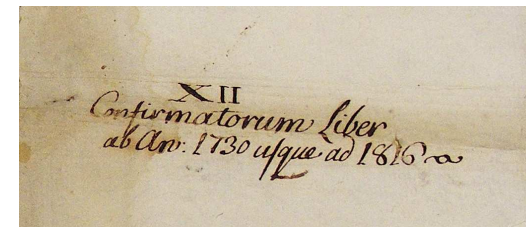 XII
Confirmatorum Liber
ab An: 1730 usque ad 1816